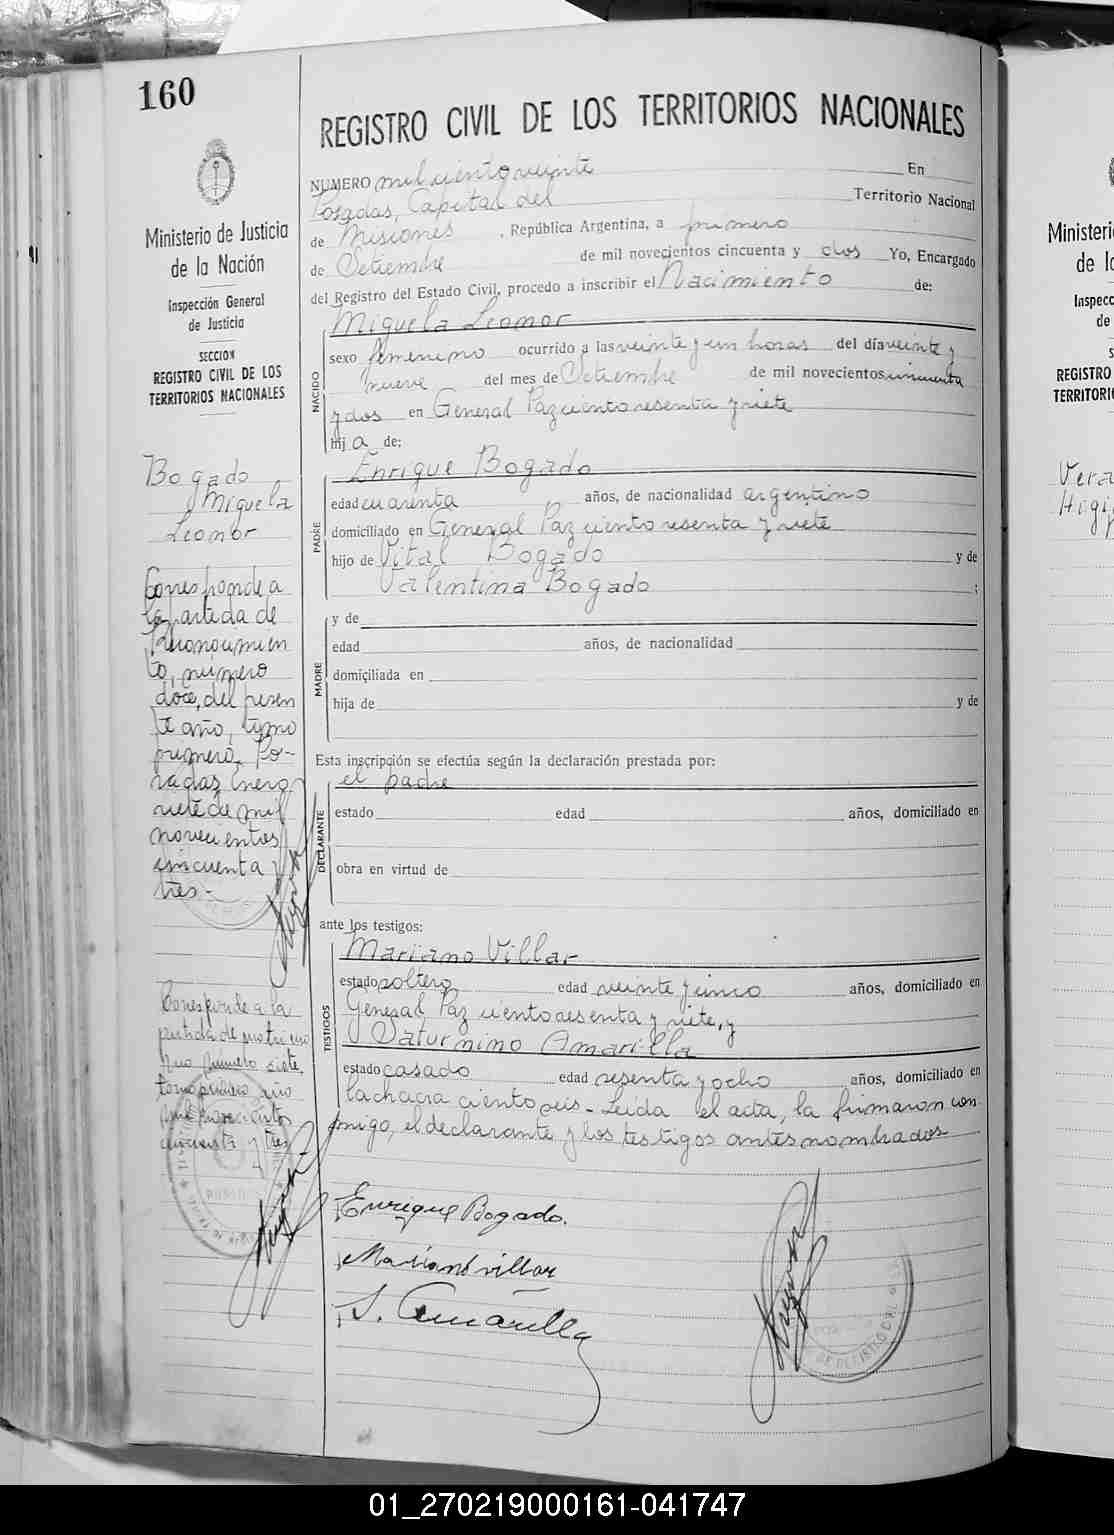 160
REGISTRO CIVIL DE LOS TERRITORIOS NACIONALES
Ministerio de Justicia
de la Nación
Inspección General
de Justicia
SECCION
REGISTRO CIVIL DE LOS
TERRITORIOS NACIONALES
Bogado
Miguela
Leonor
Corresponde a
la partida de
Reconocimien
to, número
doce, del presen
te año, tomo
primero. Po-
sadas, Enero
siete de mil
novecientos
cincuenta y
tres.-
Corresponde a la
partida de matrimo
nio número siete,
tomo primero año
mil novecientos
cincuenta y tres
NUMERO mil ciento veinte En
Posadas, Capital del Territorio Nacional
de Misiones, República Argentina, a primero
de Setiembre de mil novecientos cincuenta y dos Yo, Encargado
del Registro del Estado Civil, procedo a inscribir el Nacimiento de:
NACIDO
Miguela Leonor
sexo femenino ocurrido a las veinte y un horas del día veinte y
nueve del mes de Setiembre de mil novecientos cincuenta
y dos en General Paz ciento sesenta y siete
hija de:
PADRE
Enrique Bogado
edad cuarenta años, de nacionalidad argentino
domiciliado en General Paz ciento sesenta y siete
hijo de Vital Bogado y de
Valentina Bogado ;
MADRE
y de
edad años, de nacionalidad
domiciliada en
hija de y de
Esta inscripción se efectúa según la declaración prestada por:
DECLARANTE
el padre
estado edad años, domiciliado en
obra en virtud de
ante los testigos:
TESTIGOS
Mariano Villar
estado soltero edad veinte y cinco años, domiciliado en
General Paz ciento sesenta y siete, y
Saturnino Amarilla
estado casado edad sesenta y ocho años, domiciliado en
la chacra ciento seis- Leída el acta, la firmaron con-
migo, el declarante y los testigos antes nombrados-
Enrique Bogado.
Mariano villar
S. Amarilla
DE REGISTRO CIVIL
Ministeri
de la
Inspecc
de
REGISTRO
TERRITORI
Vera
01_270219000161-041747